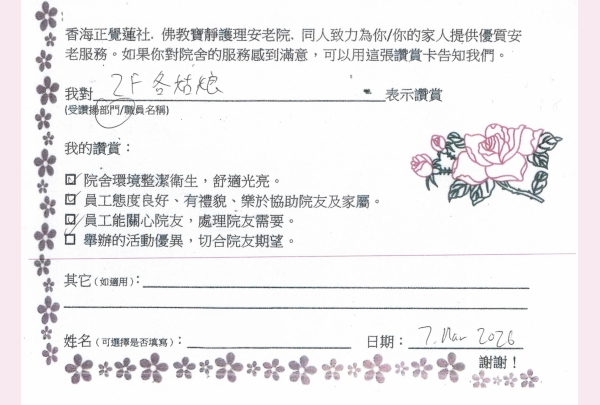 香海正覺蓮社．佛教寶靜護理安老院，同人致力為你/你的家人提供優質安
老服務。如果你對院舍的服務感到滿意，可以用這張讚賞卡告知我們。
我對 2F各姑娘 表示讚賞
(受讚揚部門/職員名稱)
我的讚賞：
☑ 院舍環境整潔衛生，舒適光亮。
☑ 員工態度良好、有禮貌、樂於協助院友及家屬。
☑ 員工能關心院友，處理院友需要。
☐ 舉辦的活動優異，切合院友期望。
其它(如適用)：
姓名(可選擇是否填寫)： 日期： 7. Mar 2026
謝謝！